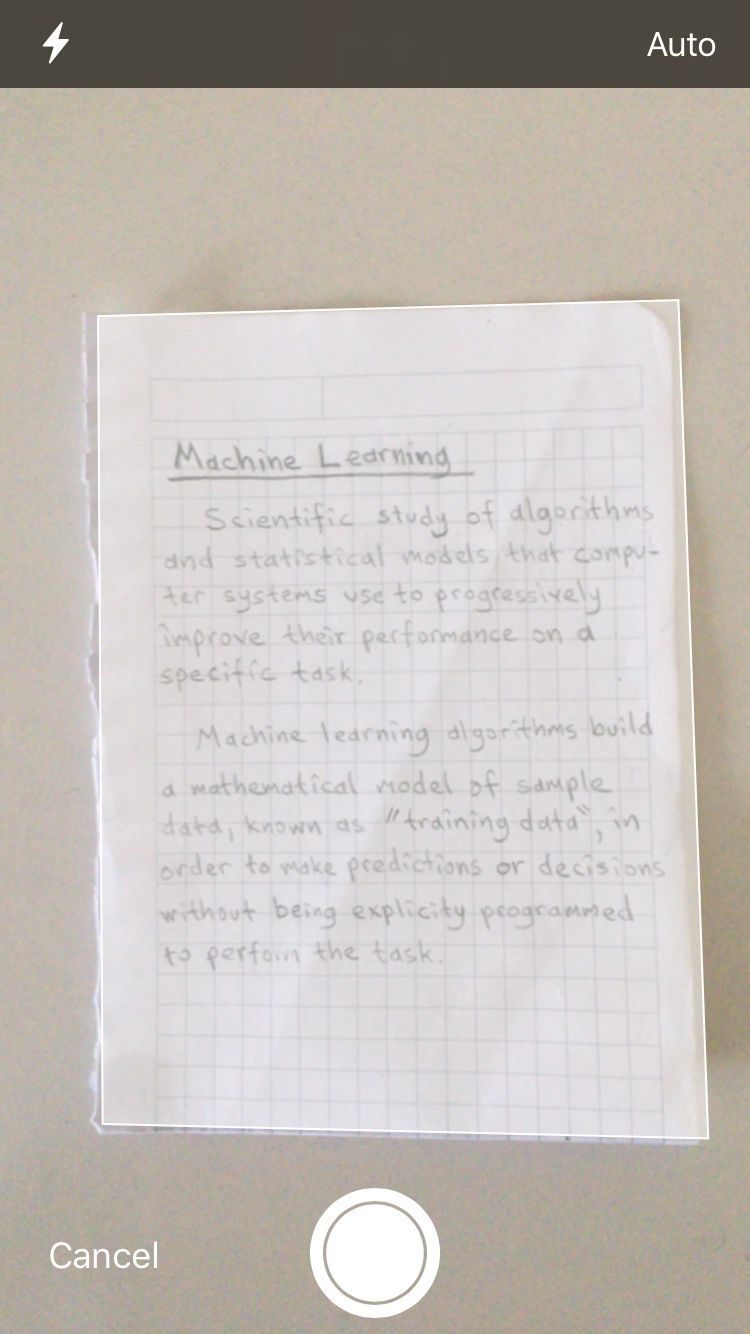 Auto
Machine Learning
Scientific study of algorithms
and statistical models that compu-
ter systems use to progressively
improve their performance on a
specific task.
Machine learning algorithms build
a mathematical model of sample
data, known as "training data", in
order to make predictions or decisions
without being explicity programmed
to perfoim the task.
Cancel